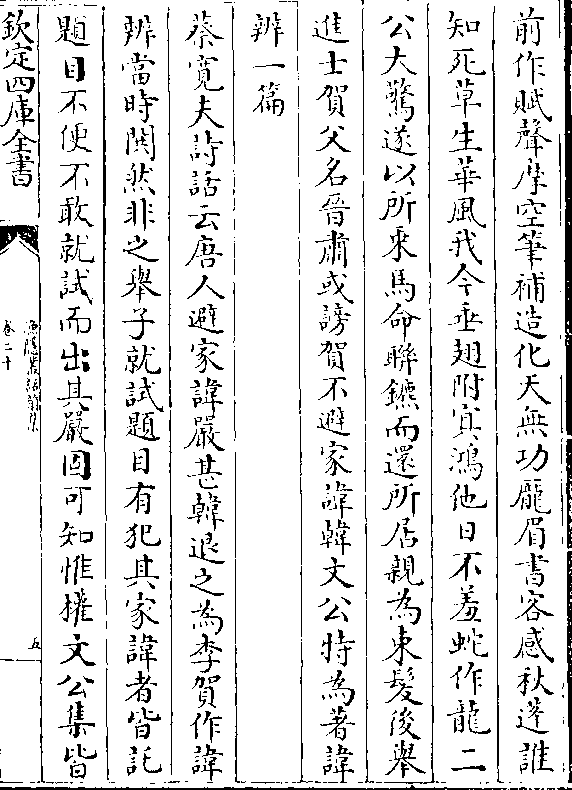 前作賦聲摩空筆補造化天無功龎眉書客感秋逢誰
知死草生華風我今垂翅附冥鴻他日不羞蛇作龍二
公大驚遂以所乘馬命聯鑣而還所居親為束髮後舉
進士賀父名晉肅或謗賀不避家諱韓文公特為著諱
辨一篇
蔡寛夫詩話云唐人避家諱嚴甚韓退之為李賀作諱
辨當時閧然非之舉子就試題目有犯其家諱者皆託
題目不便不敢就試而出其嚴固可知惟權文公集皆
欽定四庫全書
漁隱叢話前集
卷二十
五